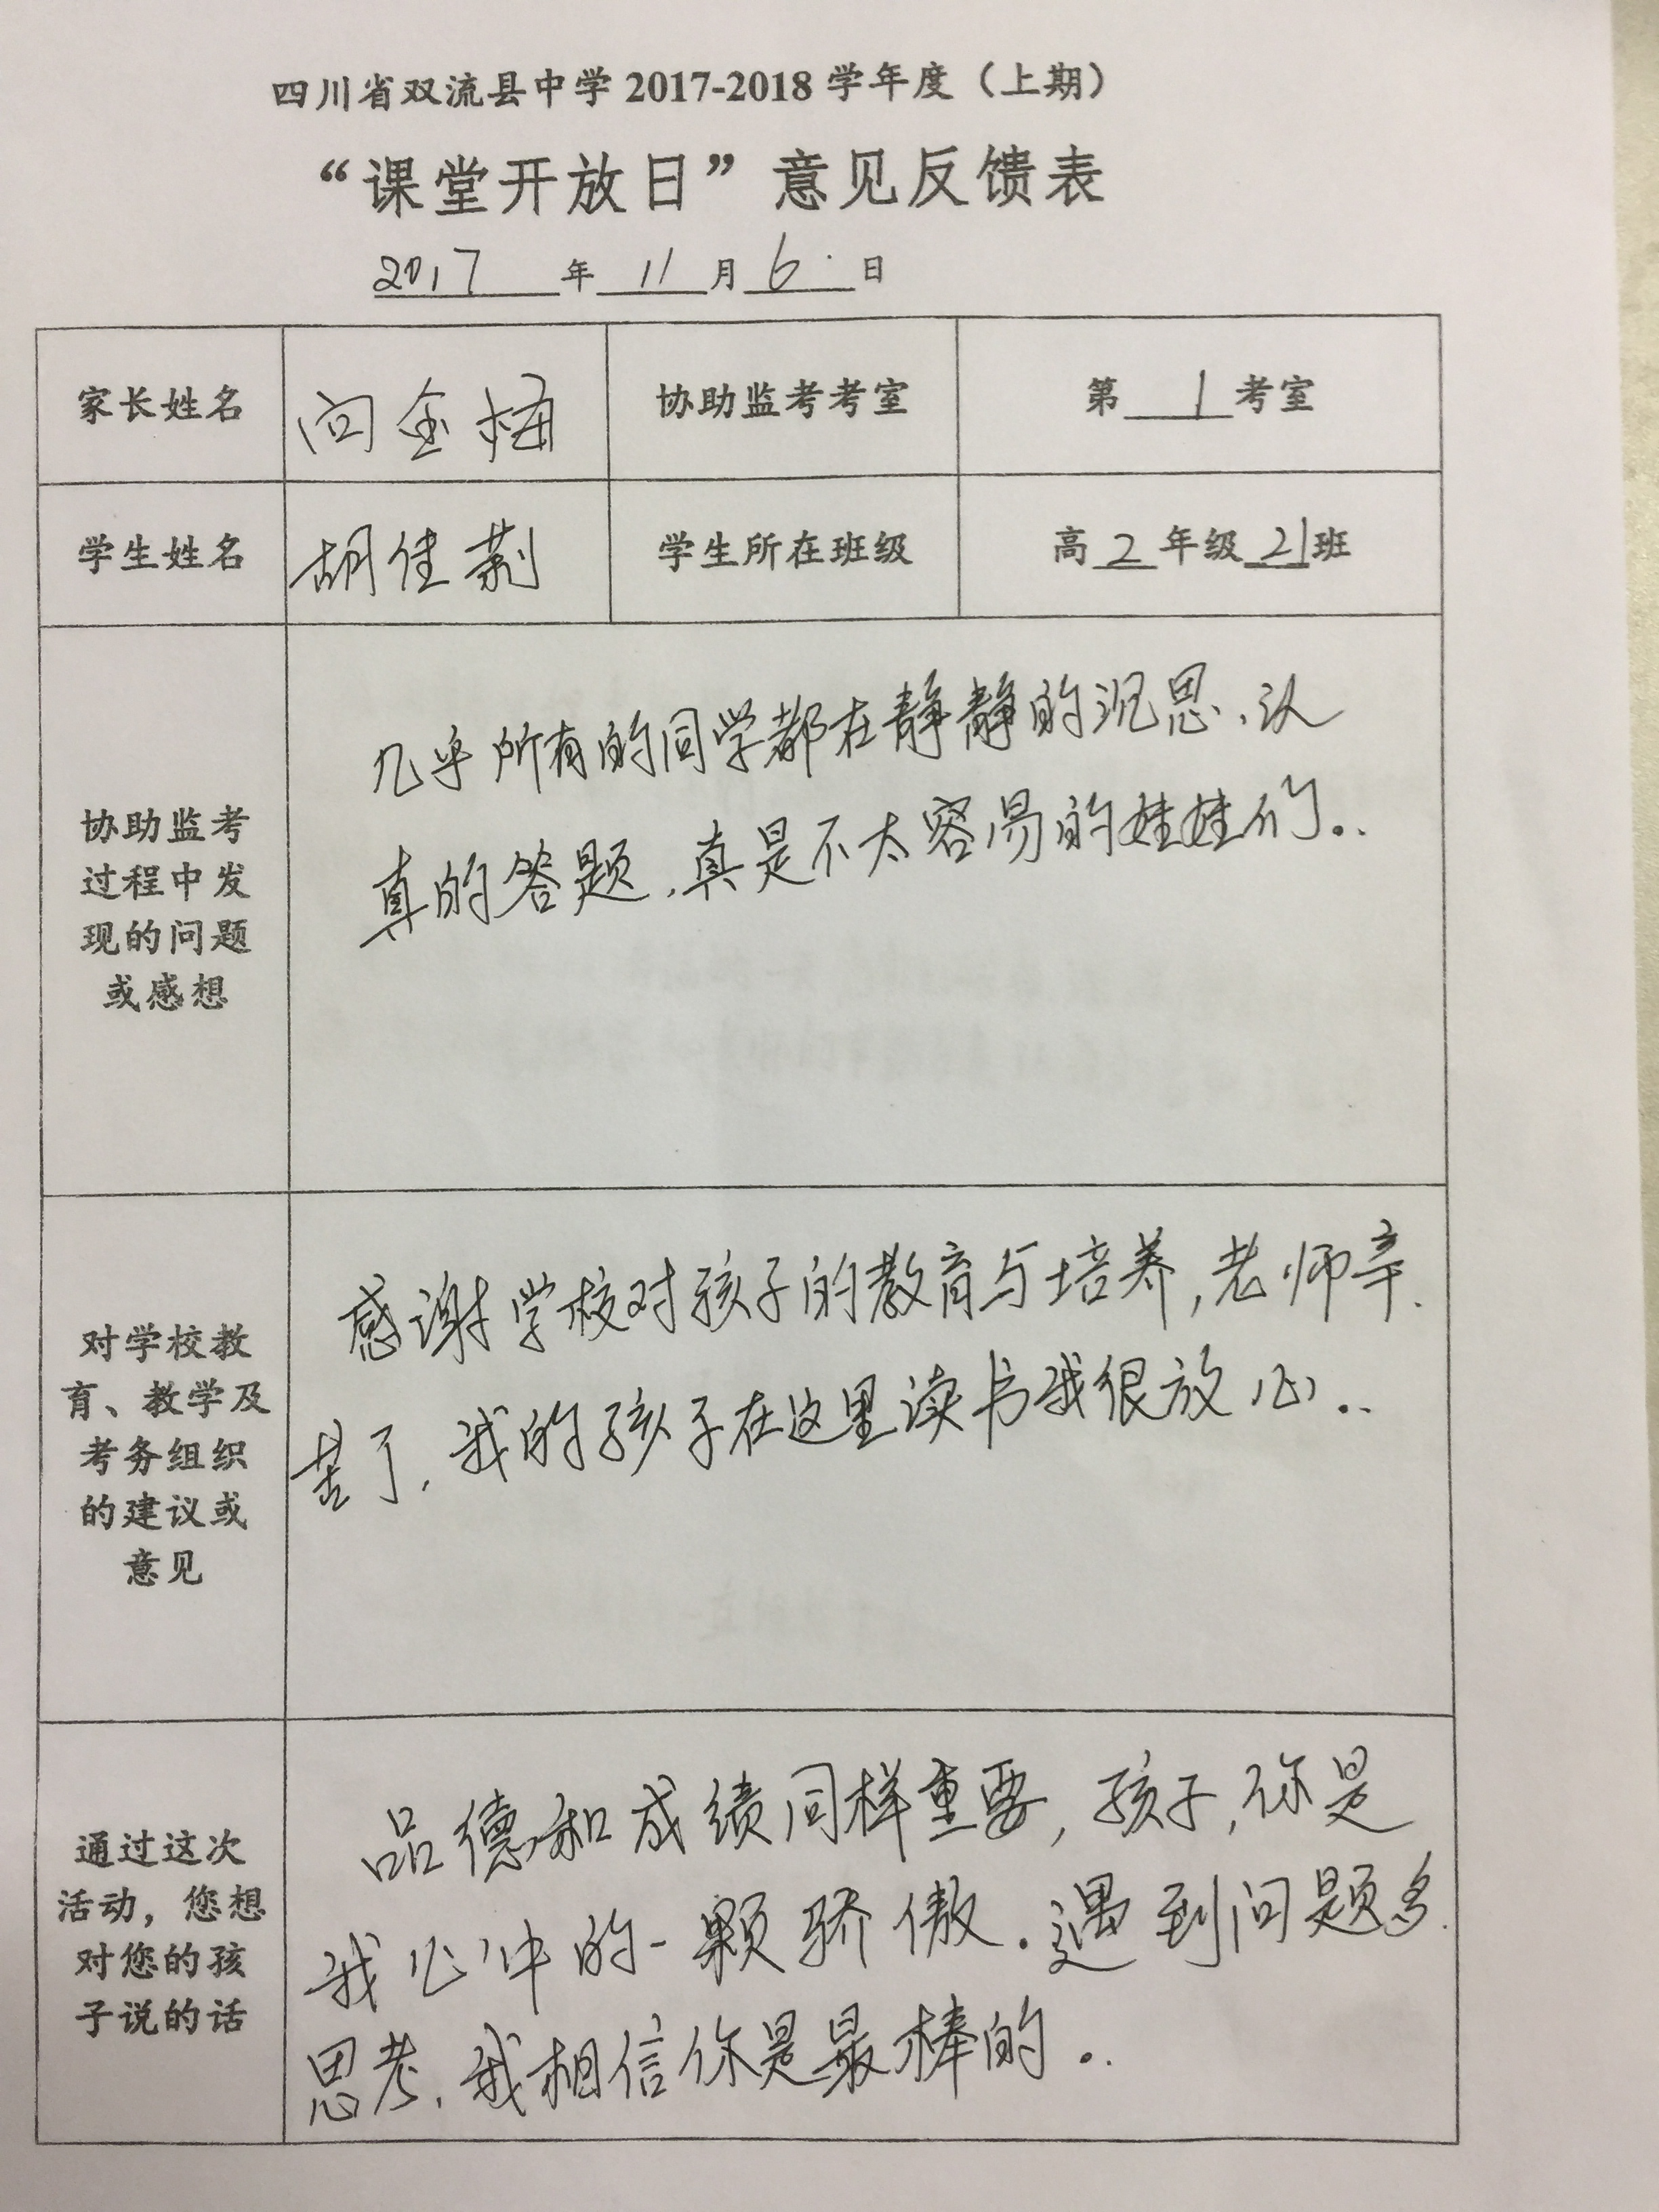 四川省双流县中学 2017-2018 学年度（上期）
“课堂开放日”意见反馈表
2017 年 11 月 6 日
家长姓名 向金梅 协助监考考室 第 1 考室
学生姓名 胡佳荆 学生所在班级 高 2 年级 21 班
协助监考
过程中发
现的问题
或感想
几乎所有的同学都在静静的沉思、认
真的答题,真是不太容易的娃娃们..
对学校教
育、教学及
考务组织
的建议或
意见
感谢学校对孩子的教育与培养,老师辛
苦了,我的孩子在这里读书我很放心..
通过这次
活动，您想
对您的孩
子说的话
品德和成绩同样重要,孩子,你是
我心中的一颗骄傲.遇到问题多
思考,我相信你是最棒的..